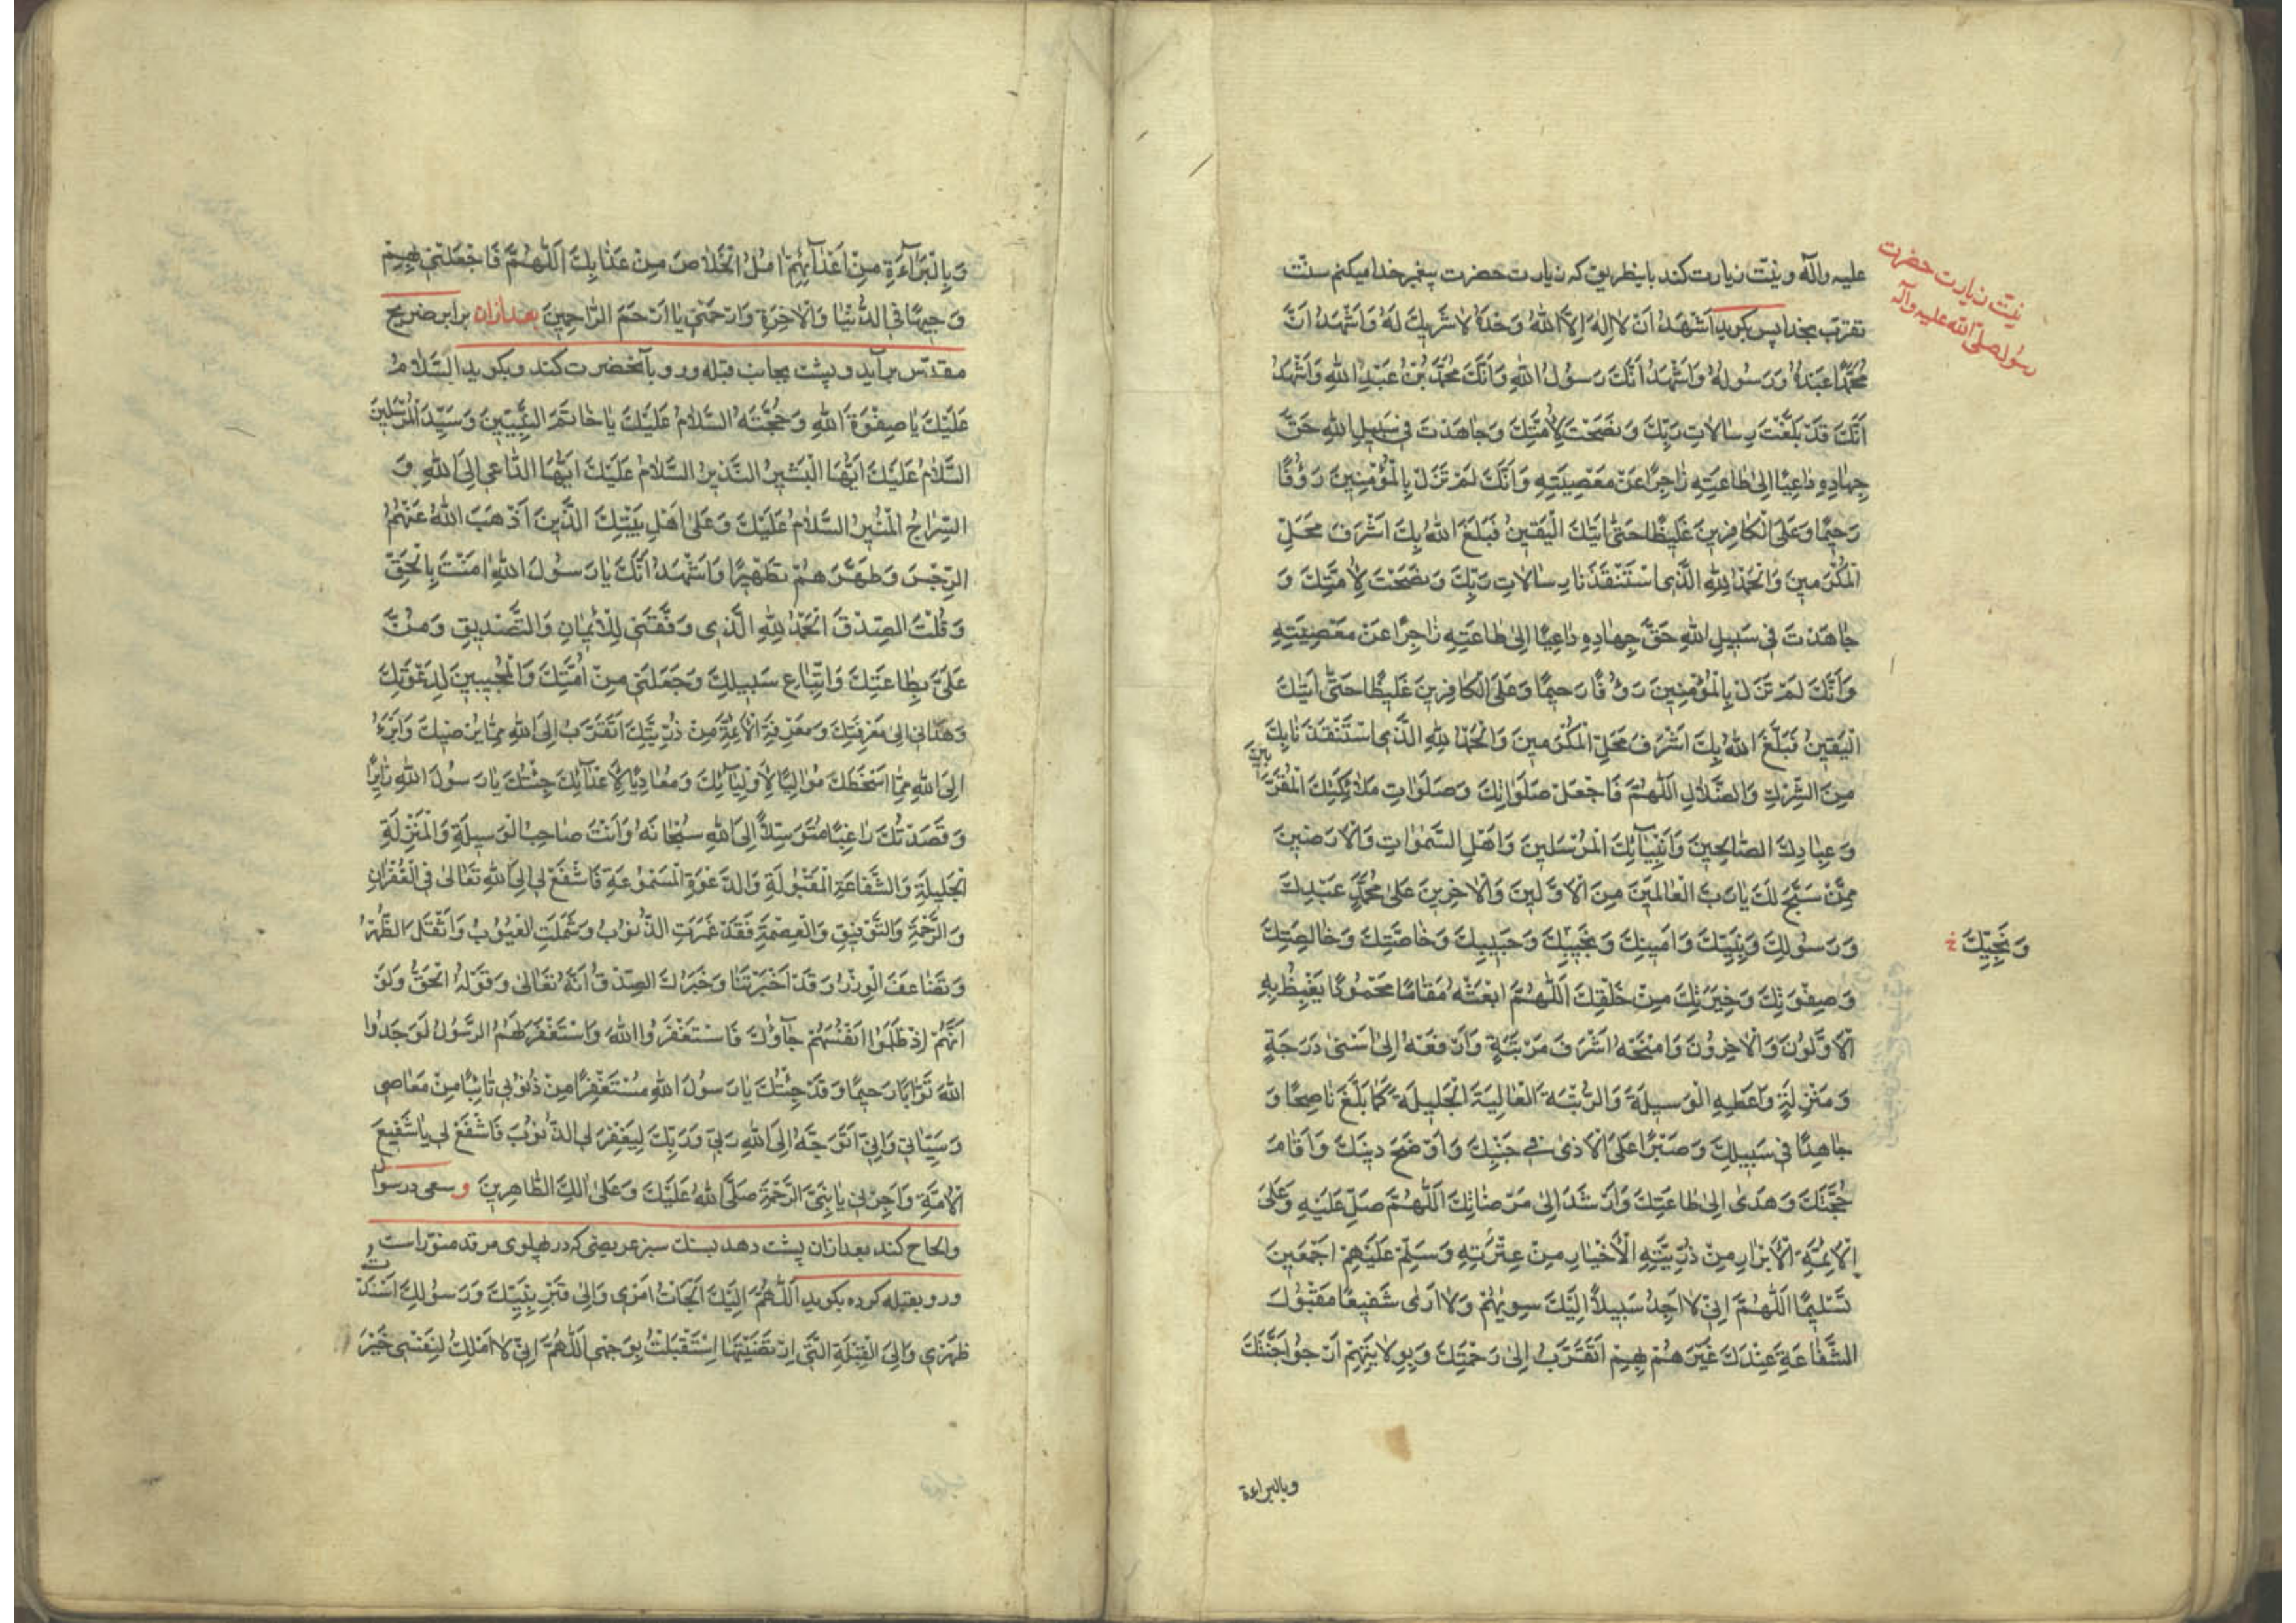 علیه وآله ونیّت زیارت کند باینطریق که زیارت حضرت پیغمبر خدا میکنم سنّت
نیّت زیارت حضرت
رسول صلّی الله علیه وآله
تقرّب بخدا پس بکوید اَشْهَدُ اَنْ لا اِلٰهَ اِلاَّ اللهُ وَحْدَهُ لا شَرِیكَ لَهُ وَاَشْهَدُ اَنَّ
مُحَمَّدًا عَبْدُهُ وَرَسُولُهُ وَاَشْهَدُ اَنَّكَ رَسُولُ اللهِ وَاَنَّكَ مُحَمَّدُ بْنُ عَبْدِ اللهِ وَاَشْهَدُ
اَنَّكَ قَدْ بَلَّغْتَ رِسالاتِ رَبِّكَ وَنَصَحْتَ لِاُمَّتِكَ وَجاهَدْتَ فی سَبیلِ اللهِ حَقَّ
جِهادِهِ داعِیًا اِلیٰ طاعَتِهِ زاجِرًا عَنْ مَعْصِیَتِهِ وَاَنَّكَ لَمْ تَزَلْ بِالْمُؤْمِنینَ رَؤُفًا
رَحیمًا وَعَلَی الْکافِرینَ غَلیظًا حَتّیٰ اَتیٰكَ الْیَقینُ فَبَلَغَ اللهُ بِكَ اَشْرَفَ مَحَلِّ
الْمُکْرَمینَ وَالْحَمْدُ لِلهِ الَّذی اسْتَنْقَذَنا رِسالاتِ رَبِّكَ وَنَصَحْتَ لِاُمَّتِكَ وَ
جاهَدْتَ فی سَبیلِ اللهِ حَقَّ جِهادِهِ داعِیًا اِلیٰ طاعَتِهِ زاجِرًا عَنْ مَعْصِیَتِهِ
وَاَنَّكَ لَمْ تَزَلْ بِالْمُؤْمِنینَ رَؤُفًا رَحیمًا وَعَلَی الْکافِرینَ غَلیظًا حَتّیٰ اَتیٰكَ
الْیَقینُ فَبَلَّغَ اللهُ بِكَ اَشْرَفَ مَحَلِّ الْمُکْرَمینَ وَالْحَمْدُ لِلهِ الَّذی اسْتَنْقَذَنا بِكَ
مِنَ الشِّرْكِ وَالضَّلالِ اَللّٰهُمَّ فَاجْعَلْ صَلَواتِكَ وَصَلَواتِ مَلائِکَتِكَ الْمُقَرَّبینَ
وَعِبادِكَ الصّالِحینَ وَاَنْبِیآئِكَ الْمُرْسَلینَ وَاَهْلِ السَّمٰواتِ وَالْاَرَضینَ
مِمَّنْ سَبَّحَ لَكَ یا رَبَّ الْعالَمینَ مِنَ الْاَوَّلینَ وَالْاٰخِرینَ عَلیٰ مُحَمَّدٍ عَبْدِكَ
وَرَسُولِكَ وَنَبِیِّكَ وَاَمینِكَ وَنَجیبِكَ وَحَبیبِكَ وَخاصَّتِكَ وَخالِصَتِكَ
وَنَجِیِّكَ خ
وَصِفْوَتِكَ وَخِیَرَتِكَ مِنْ خَلْقِكَ اَللّٰهُمَّ ابْعَثْهُ مَقامًا مَحْمُودًا یَغْبِطُ بِهِ
الْاَوَّلُونَ وَالْاٰخِرُونَ وَامْنَحْهُ اَشْرَفَ مَرْتَبَةٍ وَارْفَعْهُ اِلیٰ اَسْنیٰ دَرَجَةٍ
وَمَنْزِلَةٍ وَاَعْطِهِ الْوَسیلَةَ وَالرُّتْبَةَ الْعالِیَةَ الْجَلیلَةَ کَمٰا بَلَّغَ ناصِحًا وَ
جاهِدًا فی سَبیلِكَ وَصَبْرًا عَلَی الْاَذیٰ فی جَنْبِكَ وَاَوْضَحَ دینَكَ وَاَقامَ
حُجَّتَكَ وَهَدیٰ اِلیٰ طاعَتِكَ وَاَرْشَدَ اِلیٰ مَرْضاتِكَ اَللّٰهُمَّ صَلِّ عَلَیْهِ وَعَلَی
الْاَئِمَّةِ الْاَبْرارِ مِنْ ذُرِّیَّتِهِ الْاَخْیارِ مِنْ عِتْرَتِهِ وَسَلِّمْ عَلَیْهِمْ اَجْمَعینَ
تَسْلیمًا اَللّٰهُمَّ اِنّی لا اَجِدُ سَبیلاً اِلَیْكَ سِویٰهُمْ وَلا اَریٰ شَفیعًا مَقْبُولَ
الشَّفاعَةِ عِنْدَكَ غَیْرَهُمْ بِهِمْ اَتَقَرَّبُ اِلیٰ رَحْمَتِكَ وَبِوِلایَتِهِمْ اَرْجُو جَنَّتَكَ
وبالبراءة
وَبِالْبَرآءَةِ مِنْ اَعْدآئِهِمْ اٰمُلُ الْخَلاصَ مِنْ عَذابِكَ اَللّٰهُمَّ فَاجْعَلْنی بِهِمْ
وَجیهًا فِی الدُّنْیا وَالْاٰخِرَةِ وَارْحَمْنی یا اَرْحَمَ الرّاحِمینَ بعدازان برابر ضریح
مقدّس برآید و پشت بجانب قبله ورو بآنحضرت کند وبکوید اَلسَّلامُ
عَلَیْكَ یا صِفْوَةَ اللهِ وَحُجَّتَهُ السَّلامُ عَلَیْكَ یا خاتَمَ النَّبِیّینَ وَسَیِّدَ الْمُرْسَلینَ
السَّلامُ عَلَیْكَ اَیُّهَا الْبَشیرُ النَّذیرُ السَّلامُ عَلَیْكَ اَیُّهَا الدّاعی اِلَی اللهِ وَ
السِّراجُ الْمُنیرُ السَّلامُ عَلَیْكَ وَعَلیٰ اَهْلِ بَیْتِكَ الَّذینَ اَذْهَبَ اللهُ عَنْهُمُ
الرِّجْسَ وَطَهَّرَهُمْ تَطْهیرًا وَاَشْهَدُ اَنَّكَ یا رَسُولَ اللهِ اٰمَنْتَ بِالْحَقِّ
وَقُلْتَ الصِّدْقَ اَلْحَمْدُ لِلهِ الَّذی وَفَّقَنی لِلْاٖیمٰانِ وَالتَّصْدیقِ وَمَنَّ
عَلَیَّ بِطاعَتِكَ وَاتِّباعِ سَبیلِكَ وَجَعَلَنی مِنْ اُمَّتِكَ وَالْمُجیبینَ لِدَعْوَتِكَ
وَهَدٰانی اِلیٰ مَعْرِفَتِكَ وَمَعْرِفَةِ الْاَئِمَّةِ مِنْ ذُرِّیَّتِكَ اَتَقَرَّبُ اِلَی اللهِ بِمٰا یُرْضیكَ وَاَبْرَءُ
اِلَی اللهِ مِمّٰا اَسْخَطَكَ مُوالِیًا لِاَوْلِیآئِكَ وَمُعادِیًا لِاَعْدآئِكَ جِئْتُكَ یا رَسُولَ اللهِ زائِرًا
وَقَصَدْتُكَ راغِبًا مُتَوَسِّلاً اِلَی اللهِ سُبْحٰانَهُ وَاَنْتَ صاحِبُ الْوَسیلَةِ وَالْمَنْزِلَةِ
الْجَلیلَةِ وَالشَّفاعَةِ الْمَقْبُولَةِ وَالدَّعْوَةِ الْمَسْمُوعَةِ فَاشْفَعْ لی اِلَی اللهِ تَعٰالیٰ فِی الْغُفْرانِ
وَالرَّحْمَةِ وَالتَّوْفیقِ وَالْعِصْمَةِ فَقَدْ غَمَرَتِ الذُّنُوبُ وَشَمَلَتِ الْعُیُوبُ وَاَثْقَلَ الظَّهْرُ
وَتَضاعَفَ الْوِزْرُ وَقَدْ اَخْبَرْتَنا وَخَبَرُكَ الصِّدْقُ اَنَّهُ تَعٰالیٰ وَقَوْلُهُ الْحَقُّ وَلَوْ
اَنَّهُمْ اِذْ ظَلَمُوا اَنْفُسَهُمْ جآؤُكَ فَاسْتَغْفَرُوا اللهَ وَاسْتَغْفَرَ لَهُمُ الرَّسُولُ لَوَجَدُوا
اللهَ تَوّابًا رَحیمًا وَقَدْ جِئْتُكَ یا رَسُولَ اللهِ مُسْتَغْفِرًا مِنْ ذُنُوبی تائِبًا مِنْ مَعاصی
وَسَیِّئاتی وَاِنّی اَتَوَجَّهُ اِلَی اللهِ رَبّی وَرَبِّكَ لِیَغْفِرَ لِی الذُّنُوبَ فَاشْفَعْ لی یا شَفیعَ
الْاُمَّةِ وَاَجِرْنی یا نَبِیَّ الرَّحْمَةِ صَلَّی اللهُ عَلَیْكَ وَعَلیٰ اٰلِكَ الطّاهِرینَ و سعی در سؤال
والحاح کند بعدازان پشت دهد بسنك سبز عریضی که در پهلوی مرقد منوّر است و
ورو بقبله کرده بکوید اَللّٰهُمَّ اِلَیْكَ اَلْجَأْتُ اَمْری وَاِلیٰ قَبْرِ نَبِیِّكَ وَرَسُولِكَ اَسْنَدْتُ
ظَهْری وَاِلَی الْقِبْلَةِ الَّتی ارْتَضَیْتَهٰا اِسْتَقْبَلْتُ بِوَجْهی اَللّٰهُمَّ اِنّی لا اَمْلِكُ لِنَفْسی خَیْرَ